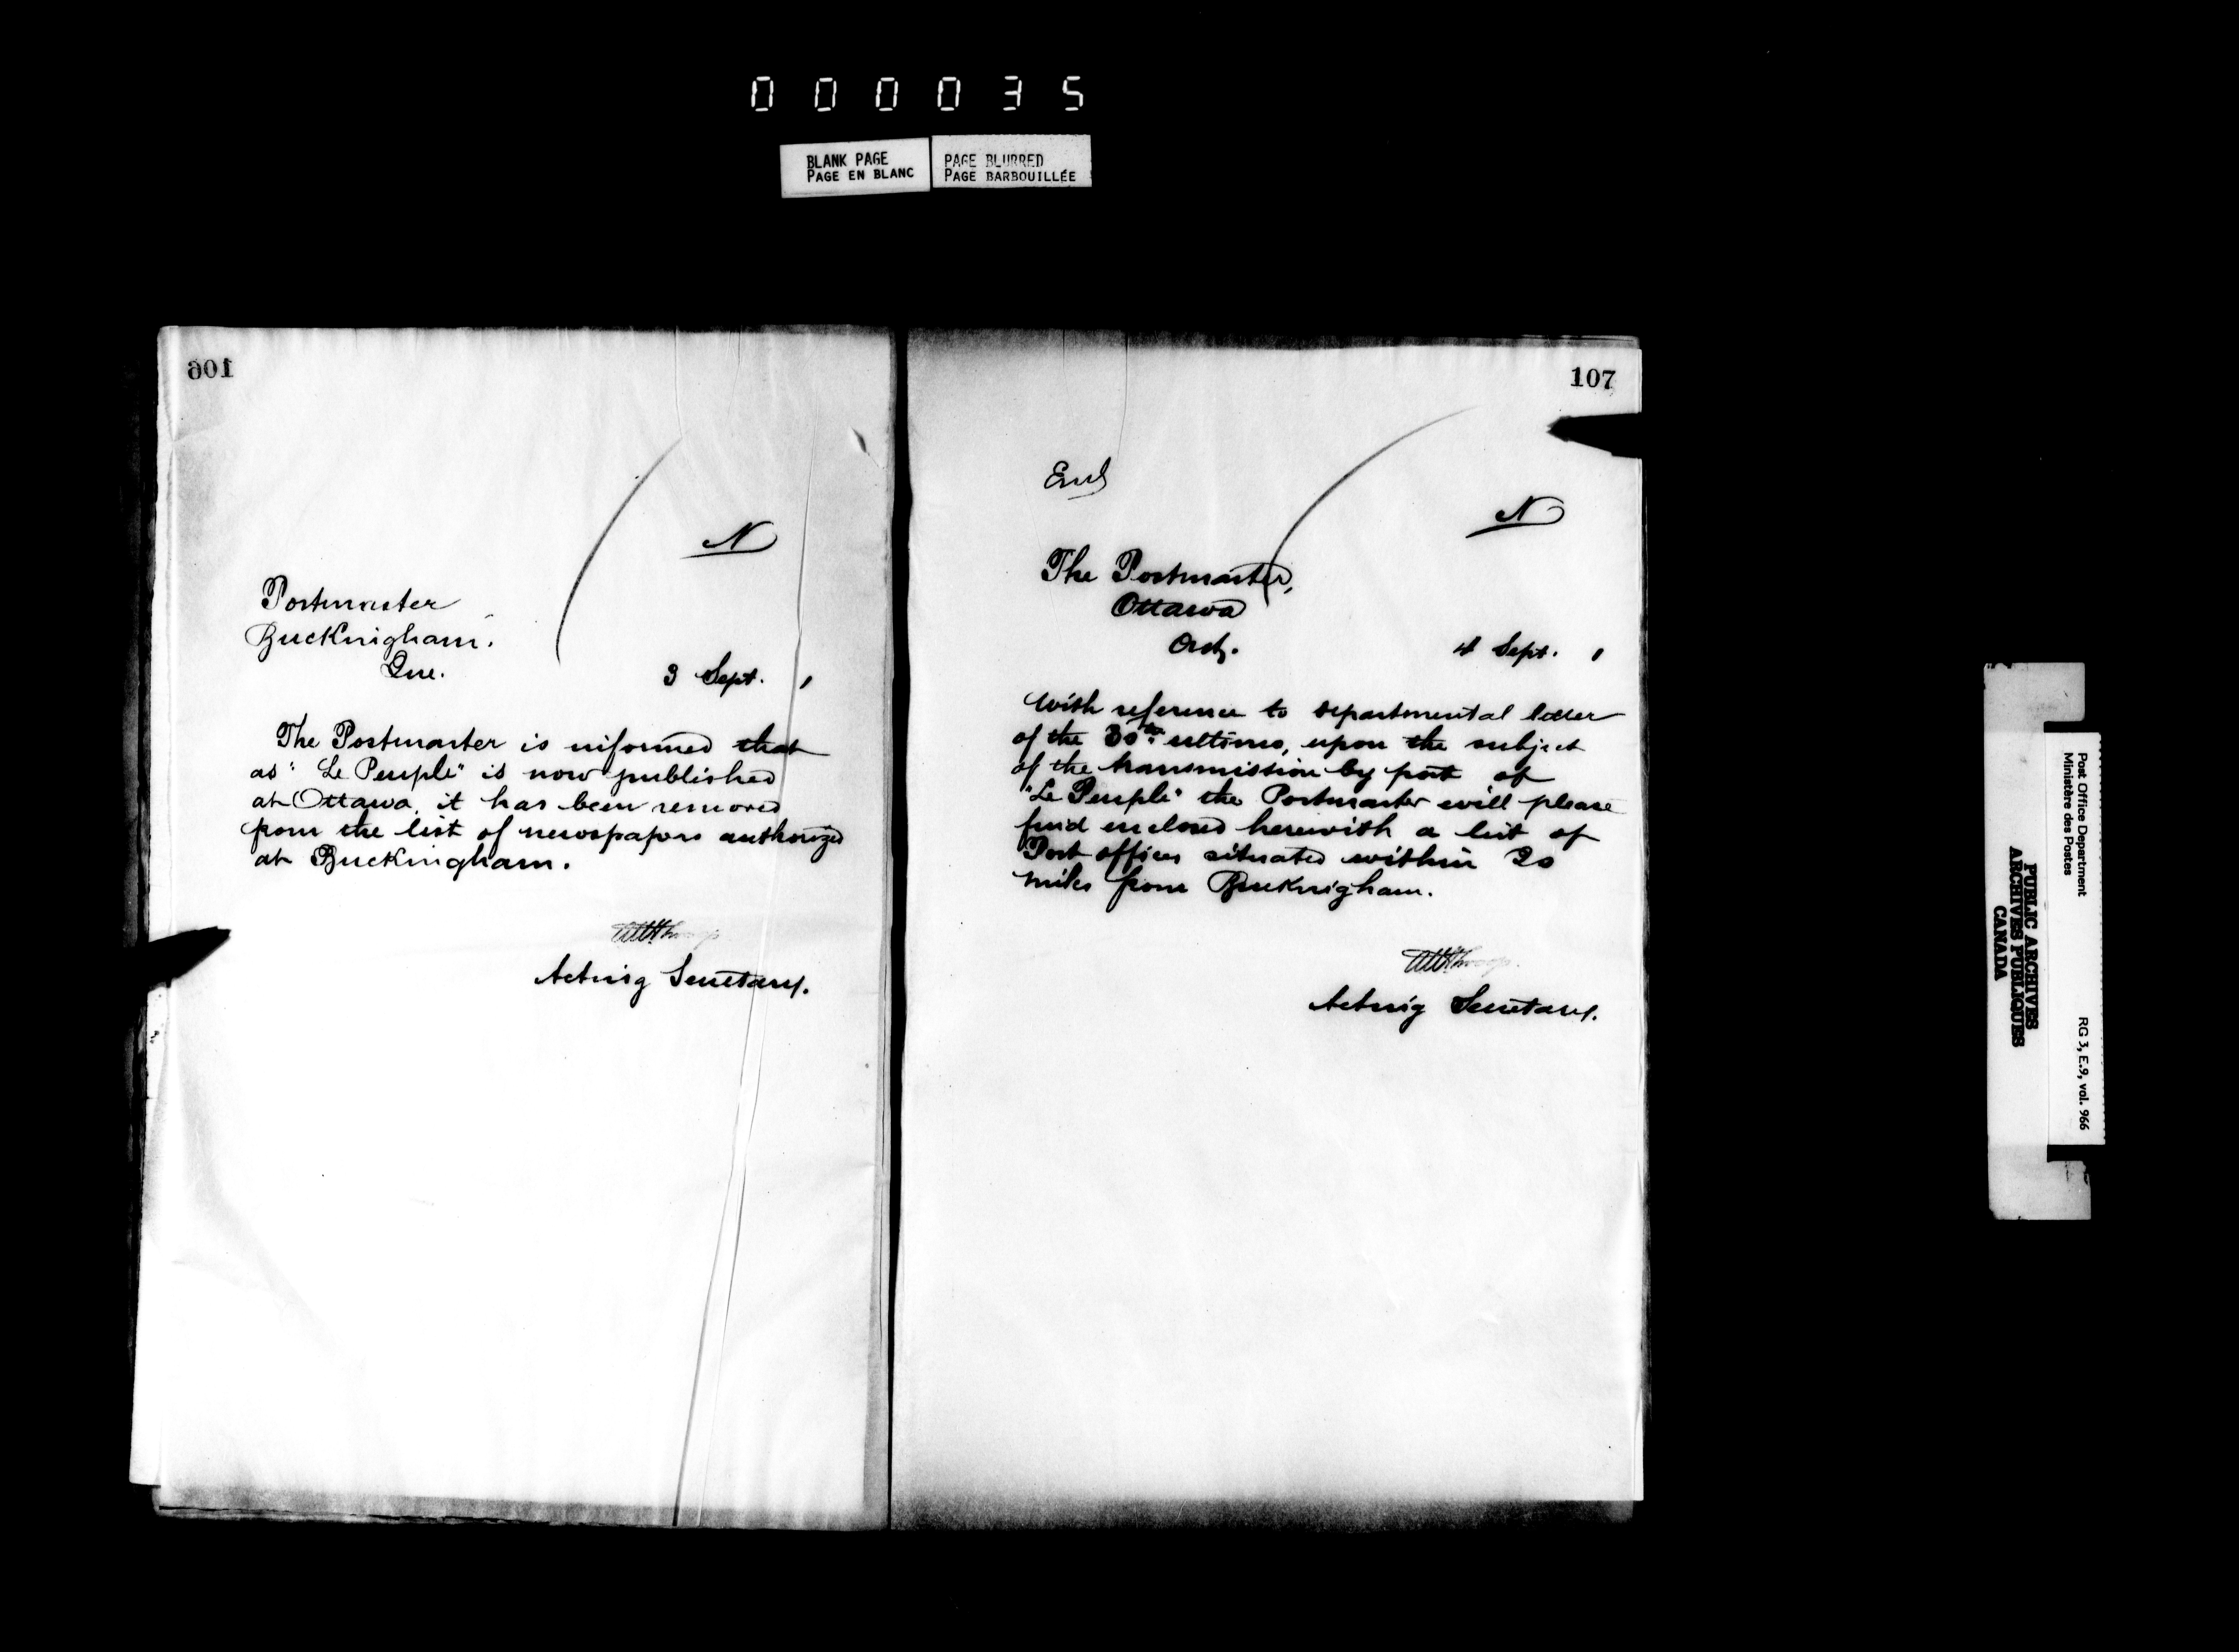 000035
BLANK PAGE
PAGE EN BLANC
PAGE BLURRED
PAGE BARBOUILLÉE
106
N
Postmaster
Buckingham.
Que.
3 Sept. 1
The Postmaster is informed that
as "Le Peuple" is now published
at Ottawa, it has been removed
from the list of newspapers authorized
at Buckingham.
Acting Secretary.
107
Encl
N
The Postmaster,
Ottawa
Ont.
4 Sept. 1
With reference to departmental letter
of the 30th ultimo, upon the subject
of the transmission by post of
"Le Peuple" the Postmaster will please
find enclosed herewith a list of
Post offices situated within 20
miles from Buckingham.
Acting Secretary.
Post Office Department
Ministère des Postes
RG 3, E.9, vol. 966
PUBLIC ARCHIVES
ARCHIVES PUBLIQUES
CANADA